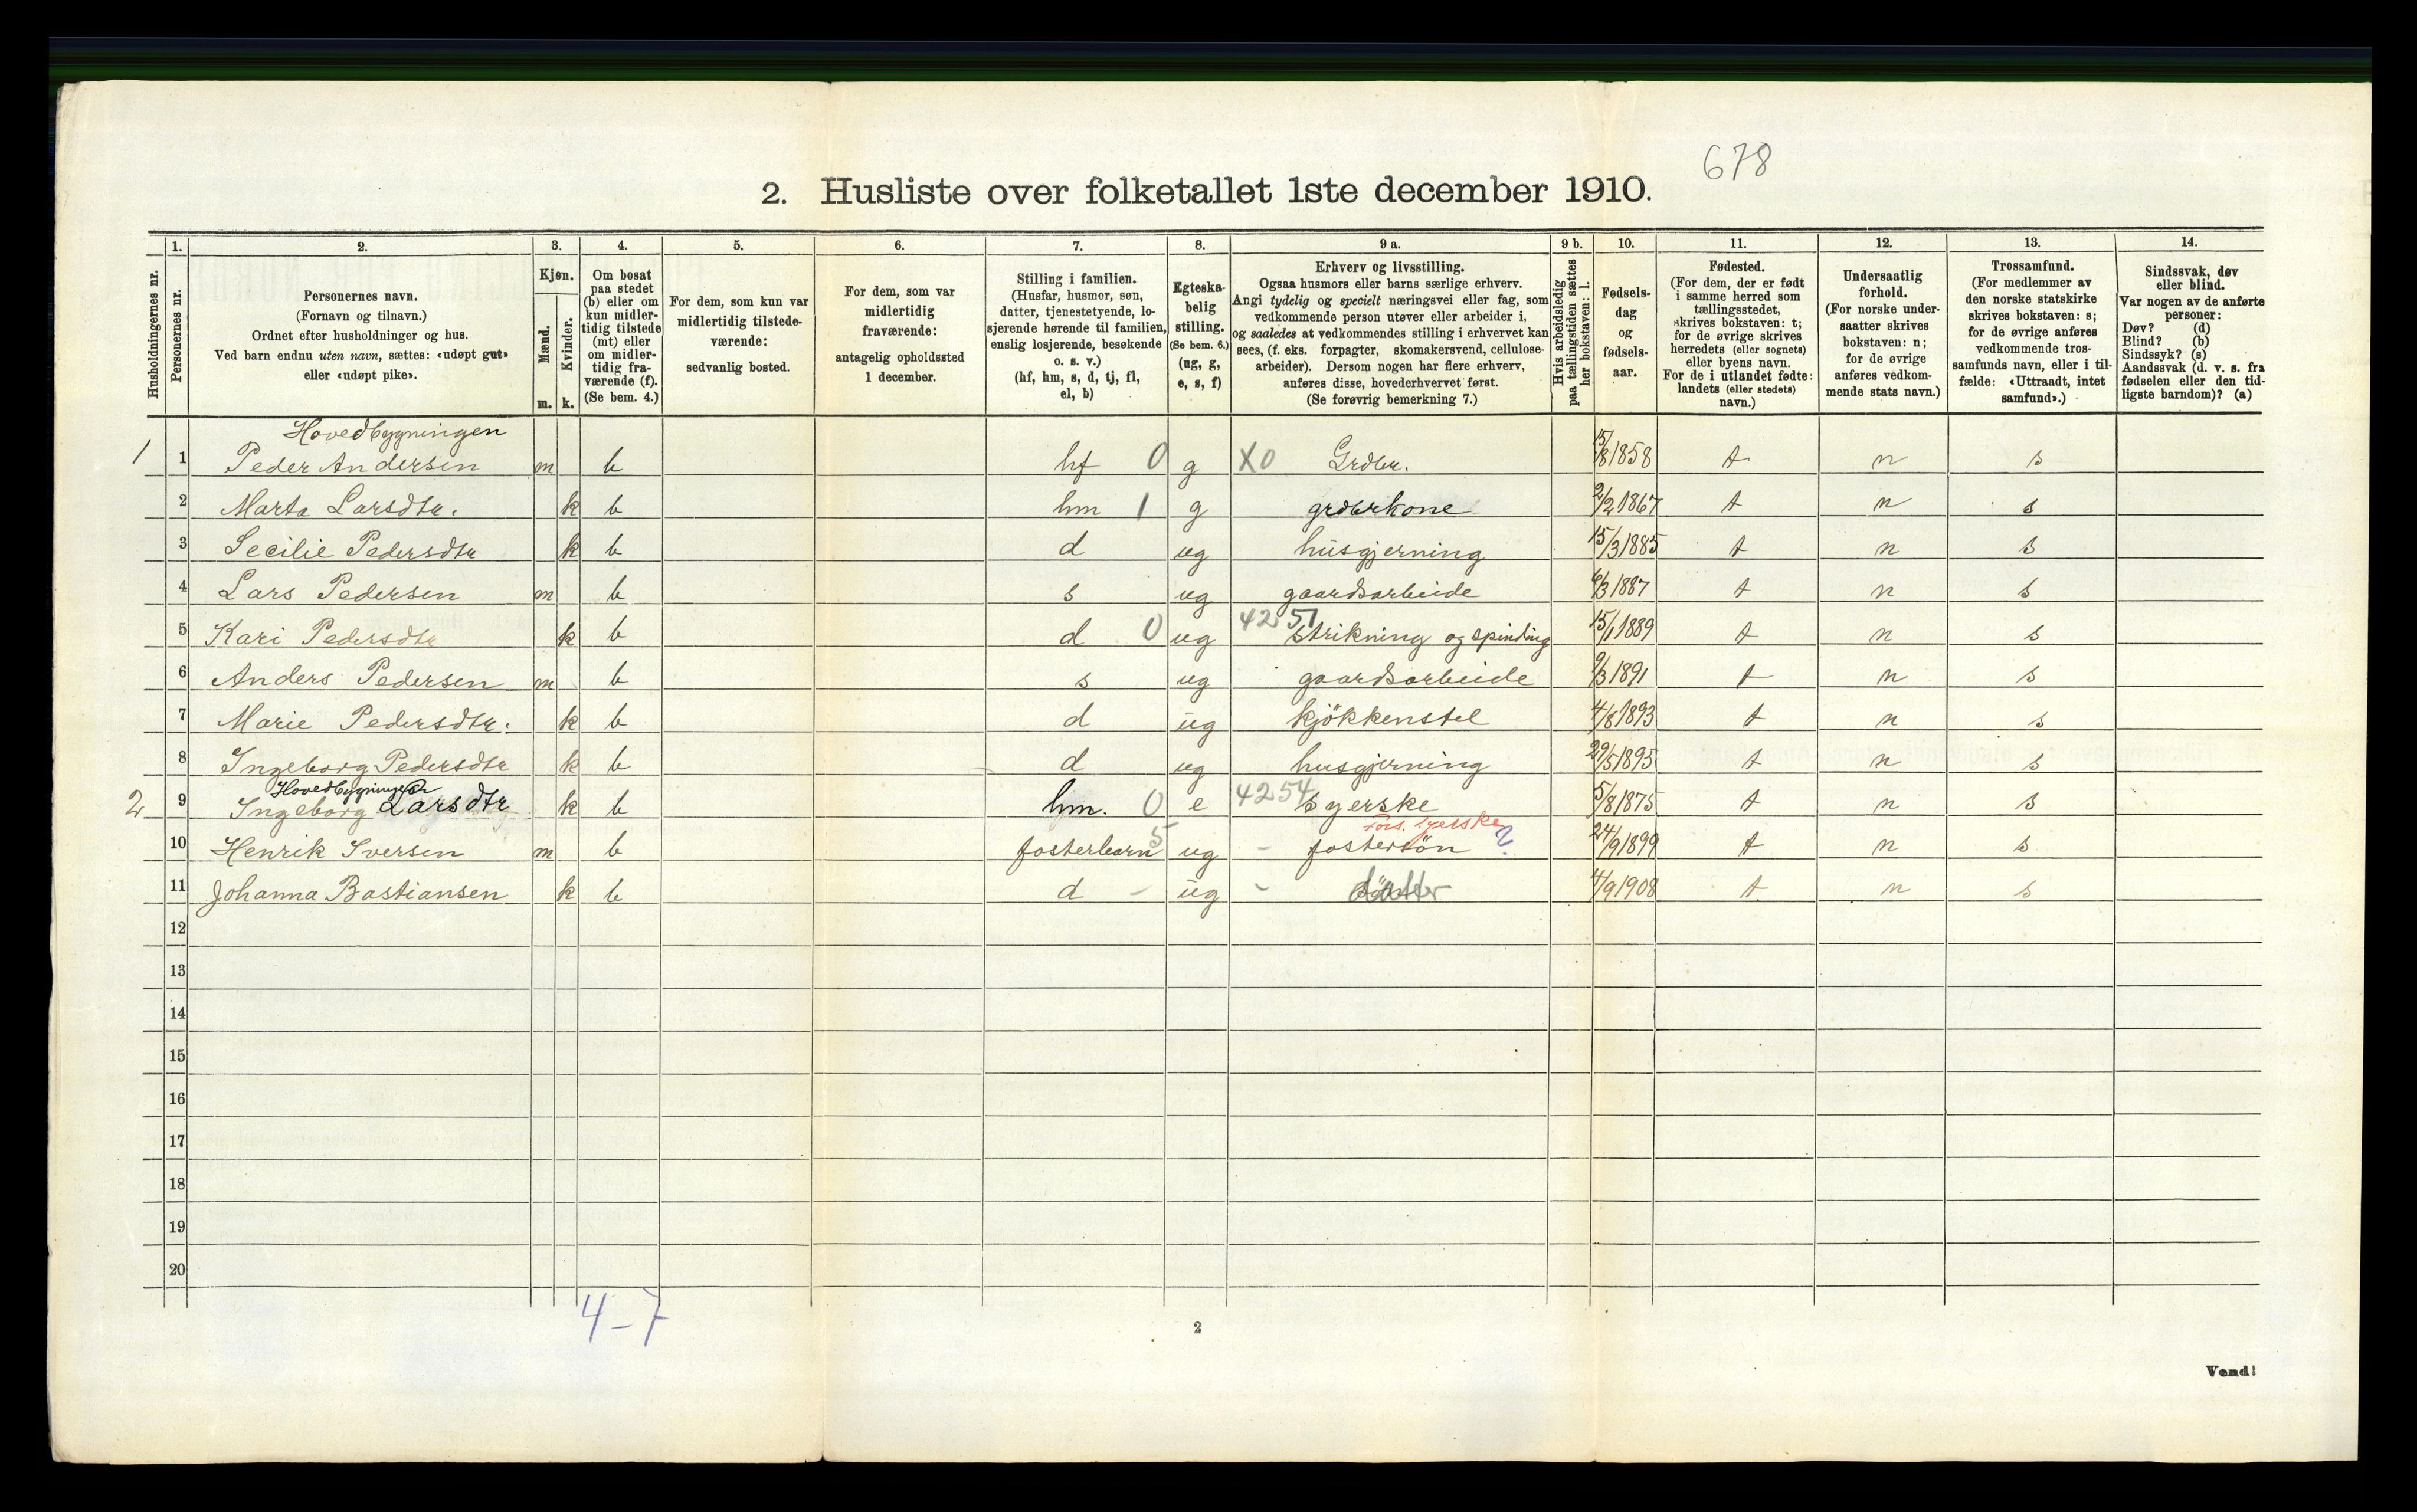 678
2. Husliste over folketallet 1ste december 1910.
Husholdningernes nr.
1.
Personernes nr.
2.
Personernes navn.
(Fornavn og tilnavn.)
Ordnet efter husholdninger og hus.
Ved barn endnu uten navn, sættes: «udøpt gut»
eller «udøpt pike».
3.
Kjøn.
Mænd.
Kvinder.
m. k.
4.
Om bosat
paa stedet
(b) eller om
kun midler-
tidig tilstede
(mt) eller
om midler-
tidig fra-
værende (f).
(Se bem. 4.)
5.
For dem, som kun var
midlertidig tilstede-
værende:
sedvanlig bosted.
6.
For dem, som var
midlertidig
fraværende:
antagelig opholdssted
1 december.
7.
Stilling i familien.
(Husfar, husmor, søn,
datter, tjenestetyende, lo-
sjerende hørende til familien,
enslig losjerende, besøkende
o. s. v.)
(hf, hm, s, d, tj, fl,
el, b)
8.
Egteska-
belig
stilling.
(Se bem. 6.)
(ug, g,
e, s, f)
9 a.
Erhverv og livsstilling.
Ogsaa husmors eller barns særlige erhverv.
Angi tydelig og specielt næringsvei eller fag, som
vedkommende person utøver eller arbeider i,
og saaledes at vedkommendes stilling i erhvervet kan
sees, (f. eks. forpagter, skomakersvend, cellulose-
arbeider). Dersom nogen har flere erhverv,
anføres disse, hovederhvervet først.
(Se forøvrig bemerkning 7.)
9 b.
Hvis arbeidsledig
paa tællingstiden sættes
her bokstaven: l.
10.
Fødsels-
dag
og
fødsels-
aar.
11.
Fødested.
(For dem, der er født
i samme herred som
tællingsstedet,
skrives bokstaven: t;
for de øvrige skrives
herredets (eller sognets)
eller byens navn.
For de i utlandet fødte:
landets (eller stedets)
navn.)
12.
Undersaatlig
forhold.
(For norske under-
saatter skrives
bokstaven: n;
for de øvrige
anføres vedkom-
mende stats navn.)
13.
Trossamfund.
(For medlemmer av
den norske statskirke
skrives bokstaven: s;
for de øvrige anføres
vedkommende tros-
samfunds navn, eller i til-
fælde: «Uttraadt, intet
samfund».)
14.
Sindssvak, døv
eller blind.
Var nogen av de anførte
personer:
Døv? (d)
Blind? (b)
Sindssyk? (s)
Aandssvak (d. v. s. fra
fødselen eller den tid-
ligste barndom)? (a)
Hovedbygningen
1 1 Peder Andersen m b hf 0 g X0 Grdbr. 15/8 1858 t n s
2 Marta Larsdtr. k b hm 1 g grdbrkone 2/2 1867 t n s
3 Secilie Pedersdtr k b d ug husgjerning 15/3 1885 t n s
4 Lars Pedersen m b s ug gaardsarbeide 6/3 1887 t n s
4251
5 Kari Pedersdtr k b d 0 ug strikning og spinding 15/1 1889 t n s
6 Anders Pedersen m b s ug gaardsarbeide 9/3 1891 t n s
7 Marie Pedersdtr. k b d ug kjökkenstel 4/8 1893 t n s
8 Ingeborg Pedersdtr k b d ug husgjerning 29/5 1895 t n s
Hovedbygningen
2 9 Ingeborg Larsdtr k b hm. 0 e 4254 syerske 5/8 1875 t n s
Fors. syerske
10 Henrik Iversen m b fosterbarn 5 ug - fostersön ? 24/9 1899 t n s
11 Johanna Bastiansen k b d - ug - datter 4/9 1908 t n s
12
13
14
15
16
17
18
19
20
4-7
2
Vend!